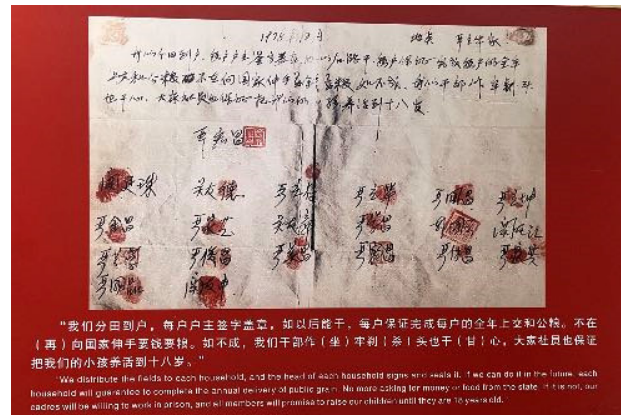 1978年12月 地点 严立华家
我们分田到户,每户户主签字盖章,如以后能干,每户保证完成每户的全年
上交和公粮。不在向国家伸手要钱要粮。如不成,我们干部作牢剎头
也干心,大家社员也保证把我们的小孩养活到十八岁。
严宏昌
关廷珠 严立符 严立华 严国昌 严立坤
严金昌 严学昌
严俊昌 严美昌 严付昌
"我们分田到户,每户户主签字盖章,如以后能干,每户保证完成每户的全年上交和公粮。不在
(再)向国家伸手要钱要粮。如不成,我们干部作(坐)牢剎(杀)头也干(甘)心,大家社员也保证
把我们的小孩养活到十八岁。"
"We distribute the fields to each household, and the head of each household signs and seals it. If we can do it in the future, each
household will guarantee to complete the annual delivery of public grain. No more asking for money or food from the state. If it is not, our
cadres will be willing to work in prison, and all members will promise to raise our children until they are 18 years old.